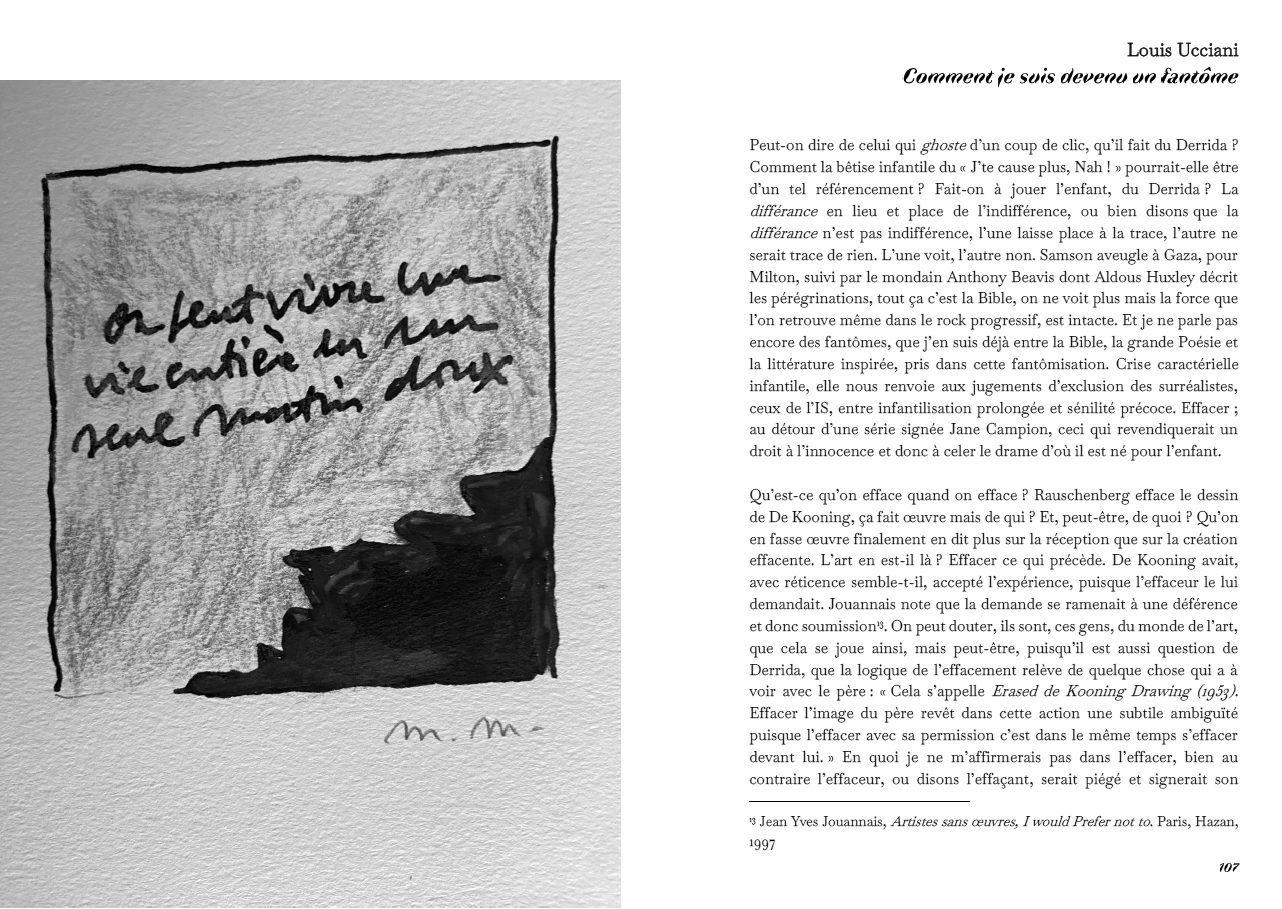 on peut vivre une
vie entière en un
seul matin doux
m. m.
Louis Ucciani
Comment je suis devenu un fantôme
Peut-on dire de celui qui ghoste d’un coup de clic, qu’il fait du Derrida ?
Comment la bêtise infantile du « J’te cause plus, Nah ! » pourrait-elle être
d’un tel référencement ? Fait-on à jouer l’enfant, du Derrida ? La
différance en lieu et place de l’indifférence, ou bien disons que la
différance n’est pas indifférence, l’une laisse place à la trace, l’autre ne
serait trace de rien. L’une voit, l’autre non. Samson aveugle à Gaza, pour
Milton, suivi par le mondain Anthony Beavis dont Aldous Huxley décrit
les pérégrinations, tout ça c’est la Bible, on ne voit plus mais la force que
l’on retrouve même dans le rock progressif, est intacte. Et je ne parle pas
encore des fantômes, que j’en suis déjà entre la Bible, la grande Poésie et
la littérature inspirée, pris dans cette fantômisation. Crise caractérielle
infantile, elle nous renvoie aux jugements d’exclusion des surréalistes,
ceux de l’IS, entre infantilisation prolongée et sénilité précoce. Effacer ;
au détour d’une série signée Jane Campion, ceci qui revendiquerait un
droit à l’innocence et donc à celer le drame d’où il est né pour l’enfant.
Qu’est-ce qu’on efface quand on efface ? Rauschenberg efface le dessin
de De Kooning, ça fait œuvre mais de qui ? Et, peut-être, de quoi ? Qu’on
en fasse œuvre finalement en dit plus sur la réception que sur la création
effacente. L’art en est-il là ? Effacer ce qui précède. De Kooning avait,
avec réticence semble-t-il, accepté l’expérience, puisque l’effaceur le lui
demandait. Jouannais note que la demande se ramenait à une déférence
et donc soumission¹³. On peut douter, ils sont, ces gens, du monde de l’art,
que cela se joue ainsi, mais peut-être, puisqu’il est aussi question de
Derrida, que la logique de l’effacement relève de quelque chose qui a à
voir avec le père : « Cela s’appelle Erased de Kooning Drawing (1953).
Effacer l’image du père revêt dans cette action une subtile ambiguïté
puisque l’effacer avec sa permission c’est dans le même temps s’effacer
devant lui. » En quoi je ne m’affirmerais pas dans l’effacer, bien au
contraire l’effaceur, ou disons l’effaçant, serait piégé et signerait son
¹³ Jean Yves Jouannais, Artistes sans œuvres, I would Prefer not to. Paris, Hazan,
1997
107